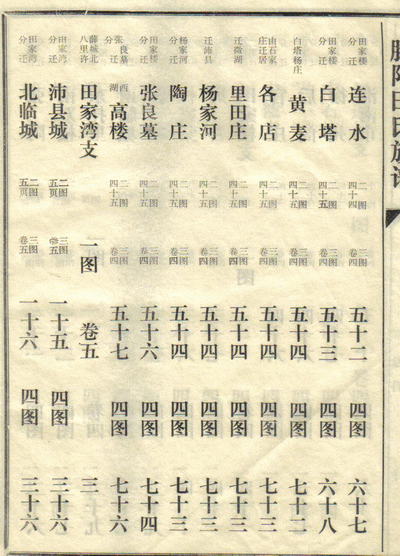 滕阳田氏族谱
田家楼分迁 连水 二图四十四 三图卷四 五十二 四图 六十七
田家楼分迁 白塔 二图四十五 三图卷四 五十三 四图 六十八
白塔杨庄 黄麦 二图四十五 三图卷四 五十四 四图 七十二
由石家庄迁居 各店 二图四十五 三图卷四 五十四 四图 七十三
迁微湖 里田庄 二图四十五 三图卷四 五十四 四图 七十三
迁沛县 杨家河 二图四十五 三图卷四 五十四 四图 七十三
杨家河分迁 陶庄 二图四十五 三图卷四 五十四 四图 七十三
田家楼分迁 张良墓 二图四十五 三图卷四 五十六 四图 七十四
张良墓分迁 湖西高楼 二图四十五 三图卷四 五十七 四图 七十六
薛城北八里许 田家湾支 一图 卷五 三
田家湾分迁 沛县城 二图五页 三图卷五 一十五 四图 三十六
田家湾分迁 北临城 二图五页 三图卷五 一十六 四图 三十六